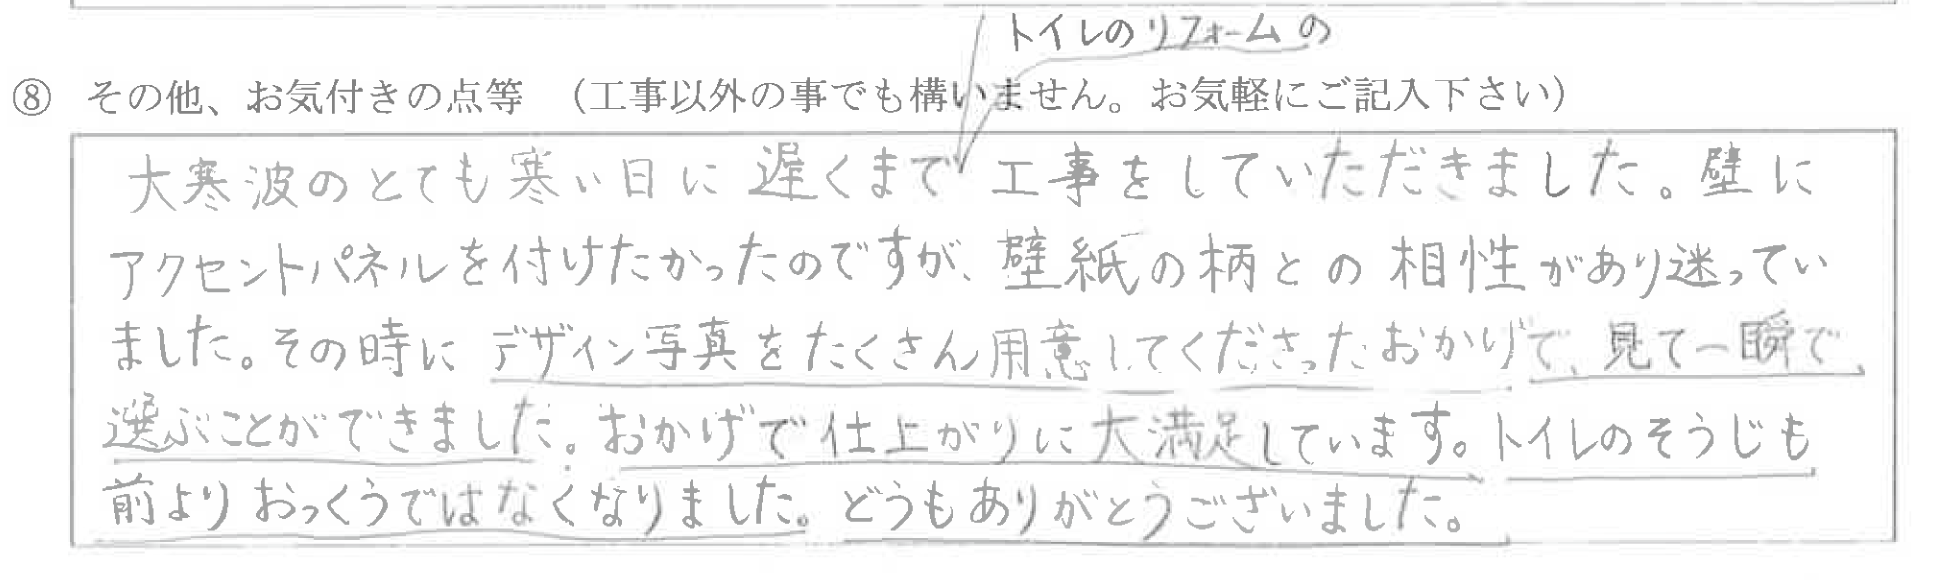 トイレのリフォームの
⑧ その他、お気付きの点等 （工事以外の事でも構いません。お気軽にご記入下さい）
大寒波のとても寒い日に遅くまで工事をしていただきました。壁に
アクセントパネルを付けたかったのですが、壁紙の柄との相性があり迷ってい
ました。その時にデザイン写真をたくさん用意してくださったおかげで、見て一瞬で、
選ぶことができました。おかげで仕上がりに大満足しています。トイレのそうじも
前よりおっくうではなくなりました。どうもありがとうございました。